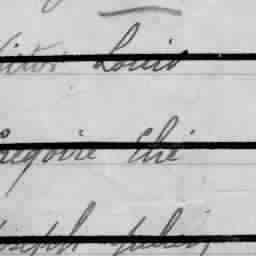 Victor Louis
Grégoire Elie
Joseph Julien